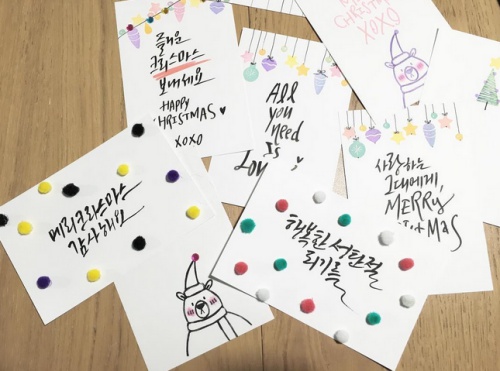 즐거운
크리스마스
보내세요
HAPPY
CHRISTMAS
XOXO
All
you
need
Is
Lov
CHRISTMAS
XOXO
사랑하는
그대에게,
MERRY
메리크리스마스
감사해요
행복한 성탄절
되기를